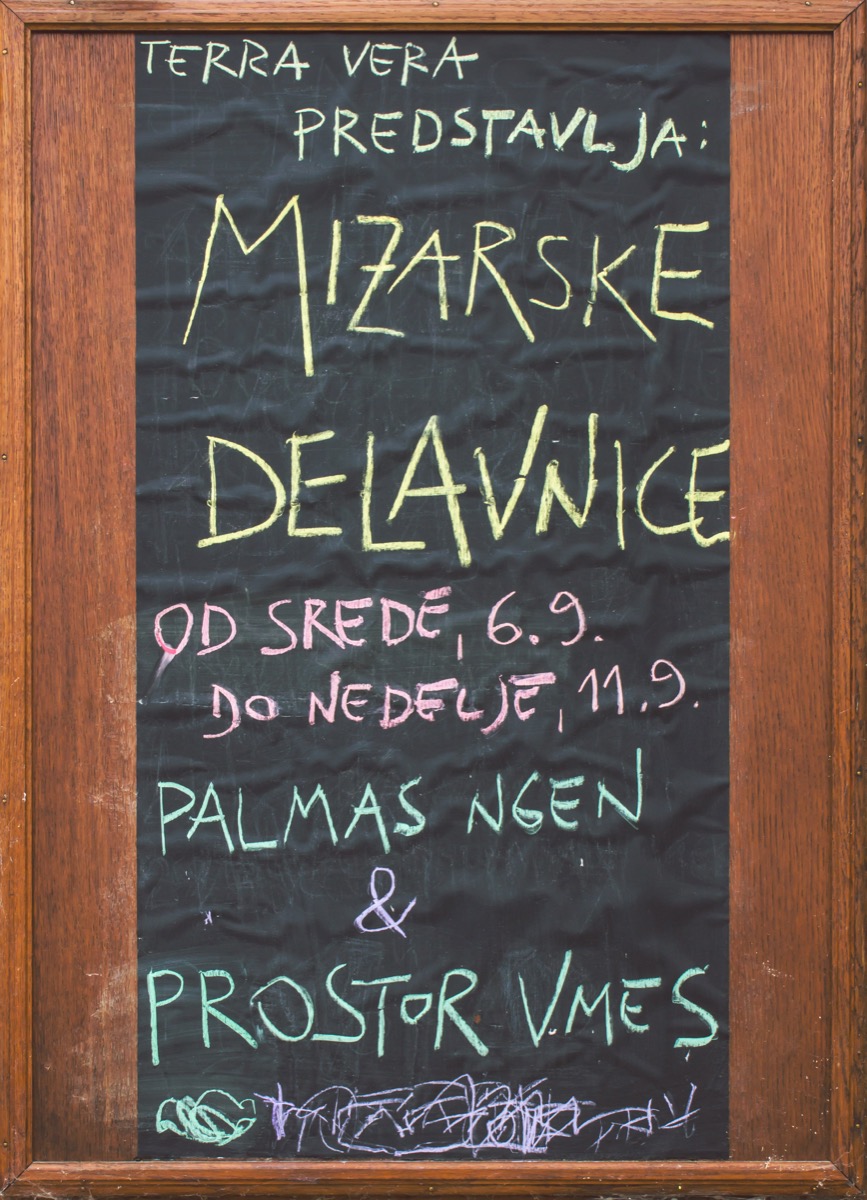 TERRA VERA
PREDSTAVLJA:
MIZARSKE
DELAVNICE
OD SREDE, 6.9.
DO NEDELJE, 11.9.
PALMAS NGEN
&
PROSTOR VMES